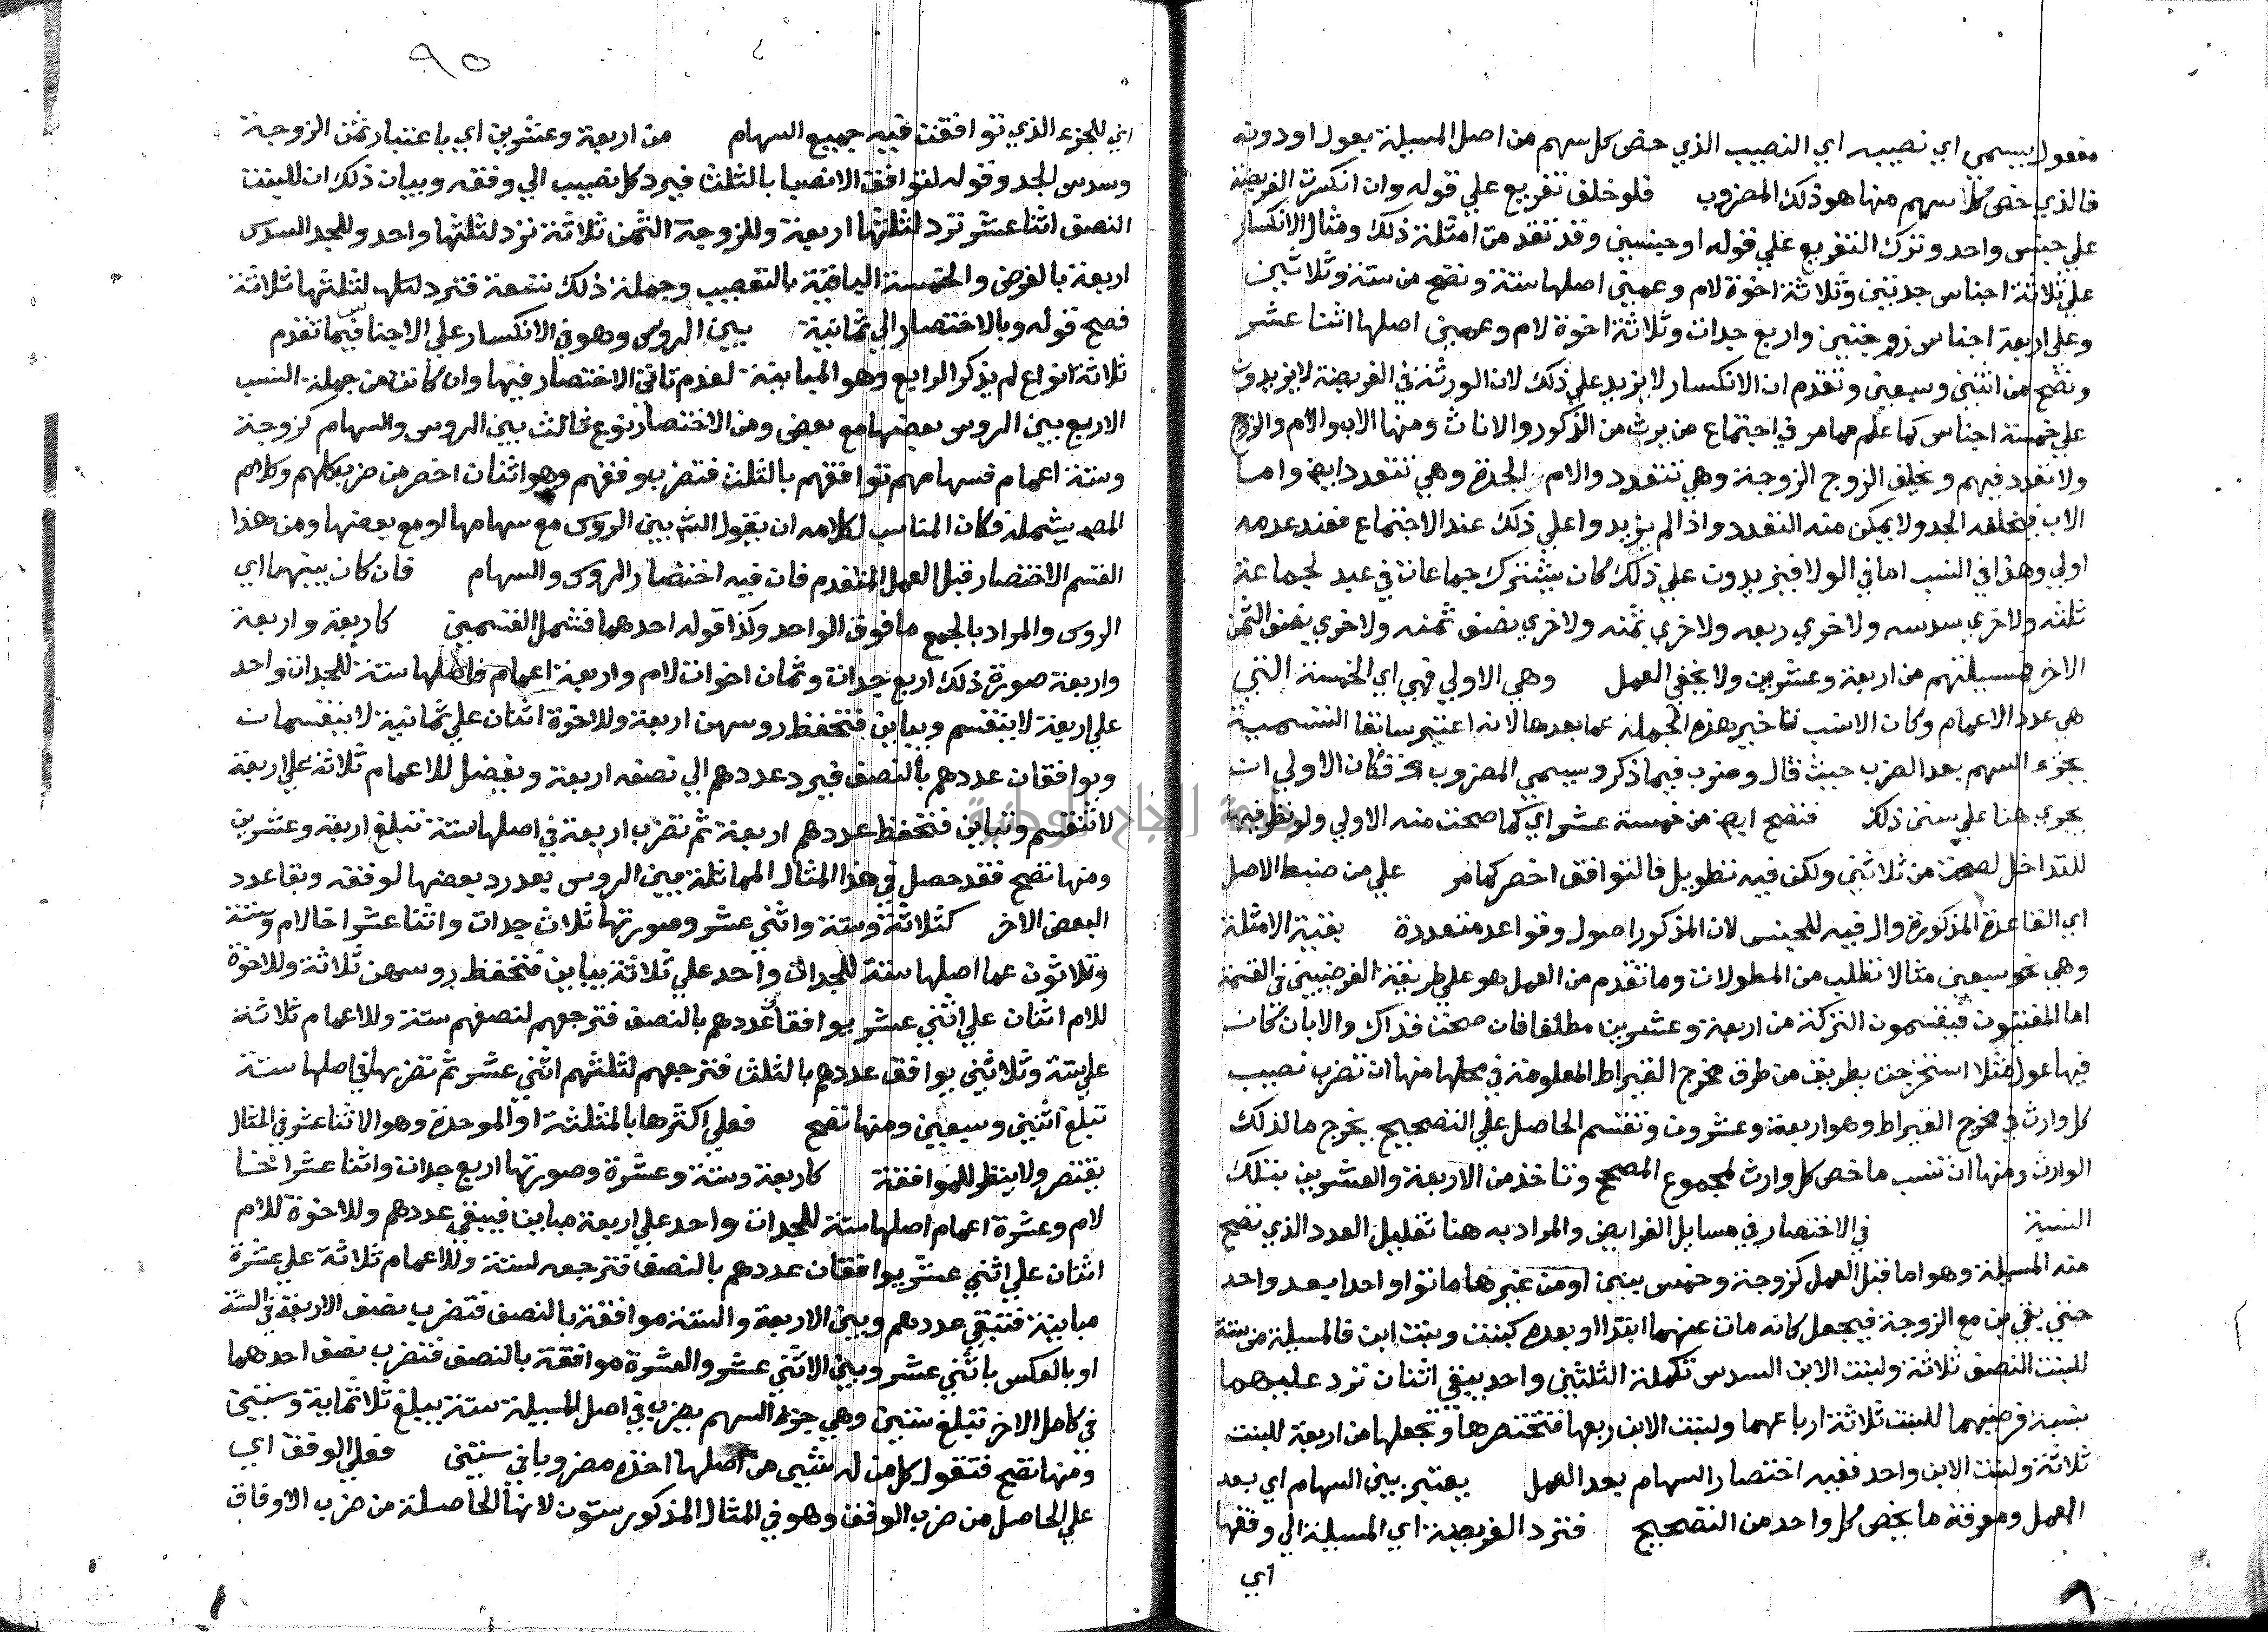 مفعول يسمى اي نصيبه اي النصيب الذي خص كل سهم من اصل المسيلة بعول او دونه
فالذي خص كل سهم منها هو ذلك المضروب فلو خلف تفريع علي قوله وان انكسرت الفريضة
علي جنس واحد وترك التفريع علي قوله او جنسين وقد تقدمت امثلة ذلك ومثال الانكسار
علي ثلاثة اجناس جدتين وثلاثة اخوة لام وعمين اصلها ستة وتصح من ستة وثلاثين
وعلي اربعة اجناس زوجتين واربع جدات وثلاثة اخوة لام وعمين اصلها اثنا عشر
وتصح من اثنين وسبعين وتقدم ان الانكسار لا يزيد علي ذلك لان الورثة في الفريضة لا يزيدون
علي خمسة اجناس كما علم مما مر في اجتماع من يرث من الذكور والاناث ومنها الاب والام والزوج
ولا تعدد فيهم ويخلف الزوج الزوجة وهي تتعدد والام الجدة وهي تتعدد ايض واما
الاب فيخلفه الجد ولا يمكن منه التعدد واذا لم يزيدوا علي ذلك عند الاجتماع فعند عدمه
اولي وهذا في النسب اما في الولا فيزيدون علي ذلك كان يشترك جماعات في عبد لجماعة
ثلثه ولاخري سدسه ولاخري ربعه ولاخري ثمنه ولاخري نصف ثمنه ولاخري نصف الثمن
الاخر فمسيلتهم من اربعة وعشرين ولا يخفي العمل وهي الاولي فهي اي الخمسة التي
هي عدد الاعمام وكان الانسب تاخير هذه الجملة عما بعدها لانه اعتبر سابقا التسمية
بجزء السهم بعد الضرب حيث قال وضرب فيما ذكر وسمي المضروب الخ فكان الاولي ان
يجري هنا علي سنن ذلك فتصح ايض من خمسة عشر اي كما صحت منه الاولي ولو نظر فيها
للتداخل لصحت من ثلاثين ولكن فيه تطويل فالتوافق اخصر كما مر علي من ضبط الاصل
اي القاعدة المذكورة وال فيه للجنس لان المذكور اصول وقواعد متعددة بقية الامثلة
وهي نحو سبعين مثالا تطلب من المطولات وما تقدم من العمل هو علي طريقة الفرضيين في القسمة
اما المفتون فيقسمون التركة من اربعة وعشرين مطلقا فان صحت فذاك والا بان كان
فيها عول مثلا استخرجت بطريق من طرق مخرج القيراط المعلومة في محلها منها ان تضرب نصيب
كل وارث في مخرج القيراط وهو اربعة وعشرون وتقسم الحاصل علي التصحيح يخرج ما لذلك
الوارث ومنها ان تنسب ما خص كل وارث لمجموع المصحح وتاخذ من الاربعة والعشرين بتلك
النسبة في الاختصار في مسايل الفرايض والمراد به هنا تقليل العدد الذي تصح
منه المسيلة وهو اما قبل العمل كزوجة وخمس بنين او من غيرها ماتوا واحدا بعد واحد
حتي بقي بن مع الزوجة فيجعل كانه مات عنهما ابتدا او بعده كبنت وبنت ابن فالمسيلة من ستة
للبنت النصف ثلاثة ولبنت الابن السدس تكملة الثلثين واحد يبقي اثنان ترد عليهما
بنسبة فرضيهما للبنت ثلاثة ارباعهما ولبنت الابن ربعها فتختصرها وتجعلها من اربعة للبنت
ثلاثة ولبنت الابن واحد ففيه اختصار السهام بعد العمل يعتبر بين السهام اي بعد
العمل ومعرفة ما يخص كل واحد من التصحيح فترد الفريضة اي المسيلة الي وفقها
اي
٩٥
اي للجزء الذي توافقت فيه جميع السهام من اربعة وعشرين اي باعتبار ثمن الزوجة
وسدس الجد وقوله لتوافق الانصبا بالثلث فيرد كل نصيب الي وفقه وبيان ذلك ان للبنت
النصف اثنا عشر ترد لثلثها اربعة وللزوجة الثمن ثلاثة ترد لثلثها واحد وللجد السدس
اربعة بالفرض والخمسة الباقية بالتعصيب وجملة ذلك تسعة فترد لثلثها ثلاثة
فصح قوله وبالاختصار الي ثمانية بين الروس وهو في الانكسار علي الاجناس فيما تقدم
ثلاثة انواع لم يذكر الرابع وهو المباينة لعدم تاتي الاختصار فيها وان كانت من جملة النسب
الاربع بين الروس بعضها مع بعض ومن الاختصار نوع ثالث بين الروس والسهام كزوجة
وستة اعمام فسهامهم توافقهم بالثلث فتضرب وفقهم وهو اثنان اخصر من ضرب كلهم وكلام
المص يشمله فكان المناسب لكلامه ان يقول الشم بين الروس مع سهامها او مع بعضها ومن هذا
القسم الاختصار قبل العمل المتقدم فان فيه اختصار الروس والسهام فان كان بينهما اي
الروس والمراد بالجمع ما فوق الواحد وكذا قوله احدهما فشمل القسمين كاربعة واربعة
واربعة صورة ذلك اربع جدات وثمان اخوات لام واربعة اعمام فاصلها ستة للجدات واحد
علي اربعة لا ينقسم ويباين فتحفظ روسهن اربعة وللاخوة اثنان علي ثمانية لا ينقسمان
ويوافقان عددهم بالنصف فيرد عددهم الي نصفه اربعة ويفضل للاعمام ثلاثة علي اربعة
لا تنقسم وتباين فتحفظ عددهم اربعة ثم تضرب اربعة في اصلها ستة تبلغ اربعة وعشرين
ومنها تصح فقد حصل في هذا المثال المماثلة بين الروس بعد رد بعضها لوفقه وبقا عدد
البعض الاخر كثلاثة وستة واثني عشر وصورتها ثلاث جدات واثنا عشر اخا لام وستة
وثلاثون عما اصلها ستة للجدات واحد علي ثلاثة يباين فتحفظ روسهن ثلاثة وللاخوة
للام اثنان علي اثني عشر يوافقان عددهم بالنصف فترجعهم لنصفهم ستة وللاعمام ثلاثة
علي ستة وثلاثين يوافق عددهم بالثلث فترجعهم لثلثهم اثني عشر ثم تضربها في اصلها ستة
تبلغ اثنين وسبعين ومنها تصح فعلي اكثرها بالمثلثة او الموحدة وهو الاثنا عشر في المثال
يقتصر ولا ينظر للموافقة كاربعة وستة وعشرة وصورتها اربع جدات واثنا عشر اخا
لام وعشرة اعمام اصلها ستة للجدات واحد علي اربعة مباين فيبقي عددهم وللاخوة للام
اثنان علي اثني عشر يوافقان عددهم بالنصف فترجعه لستة وللاعمام ثلاثة علي عشرة
مباينة فتبقي عددهم وبين الاربعة والستة موافقة بالنصف فتضرب نصف الاربعة في الستة
او بالعكس باثني عشر وبين الاثني عشر والعشرة موافقة بالنصف فتضرب نصف احدهما
في كامل الاخر تبلغ ستين وهي جزء السهم يضرب في اصل المسيلة ستة يبلغ ثلاثماية وستين
ومنها تصح فتقول كل من له شيى من اصلها اخذه مضروبا في ستين فعلي الوفق اي
علي الحاصل من ضرب الوفق وهو في المثال المذكور ستون لانها الحاصلة من ضرب الاوفاق